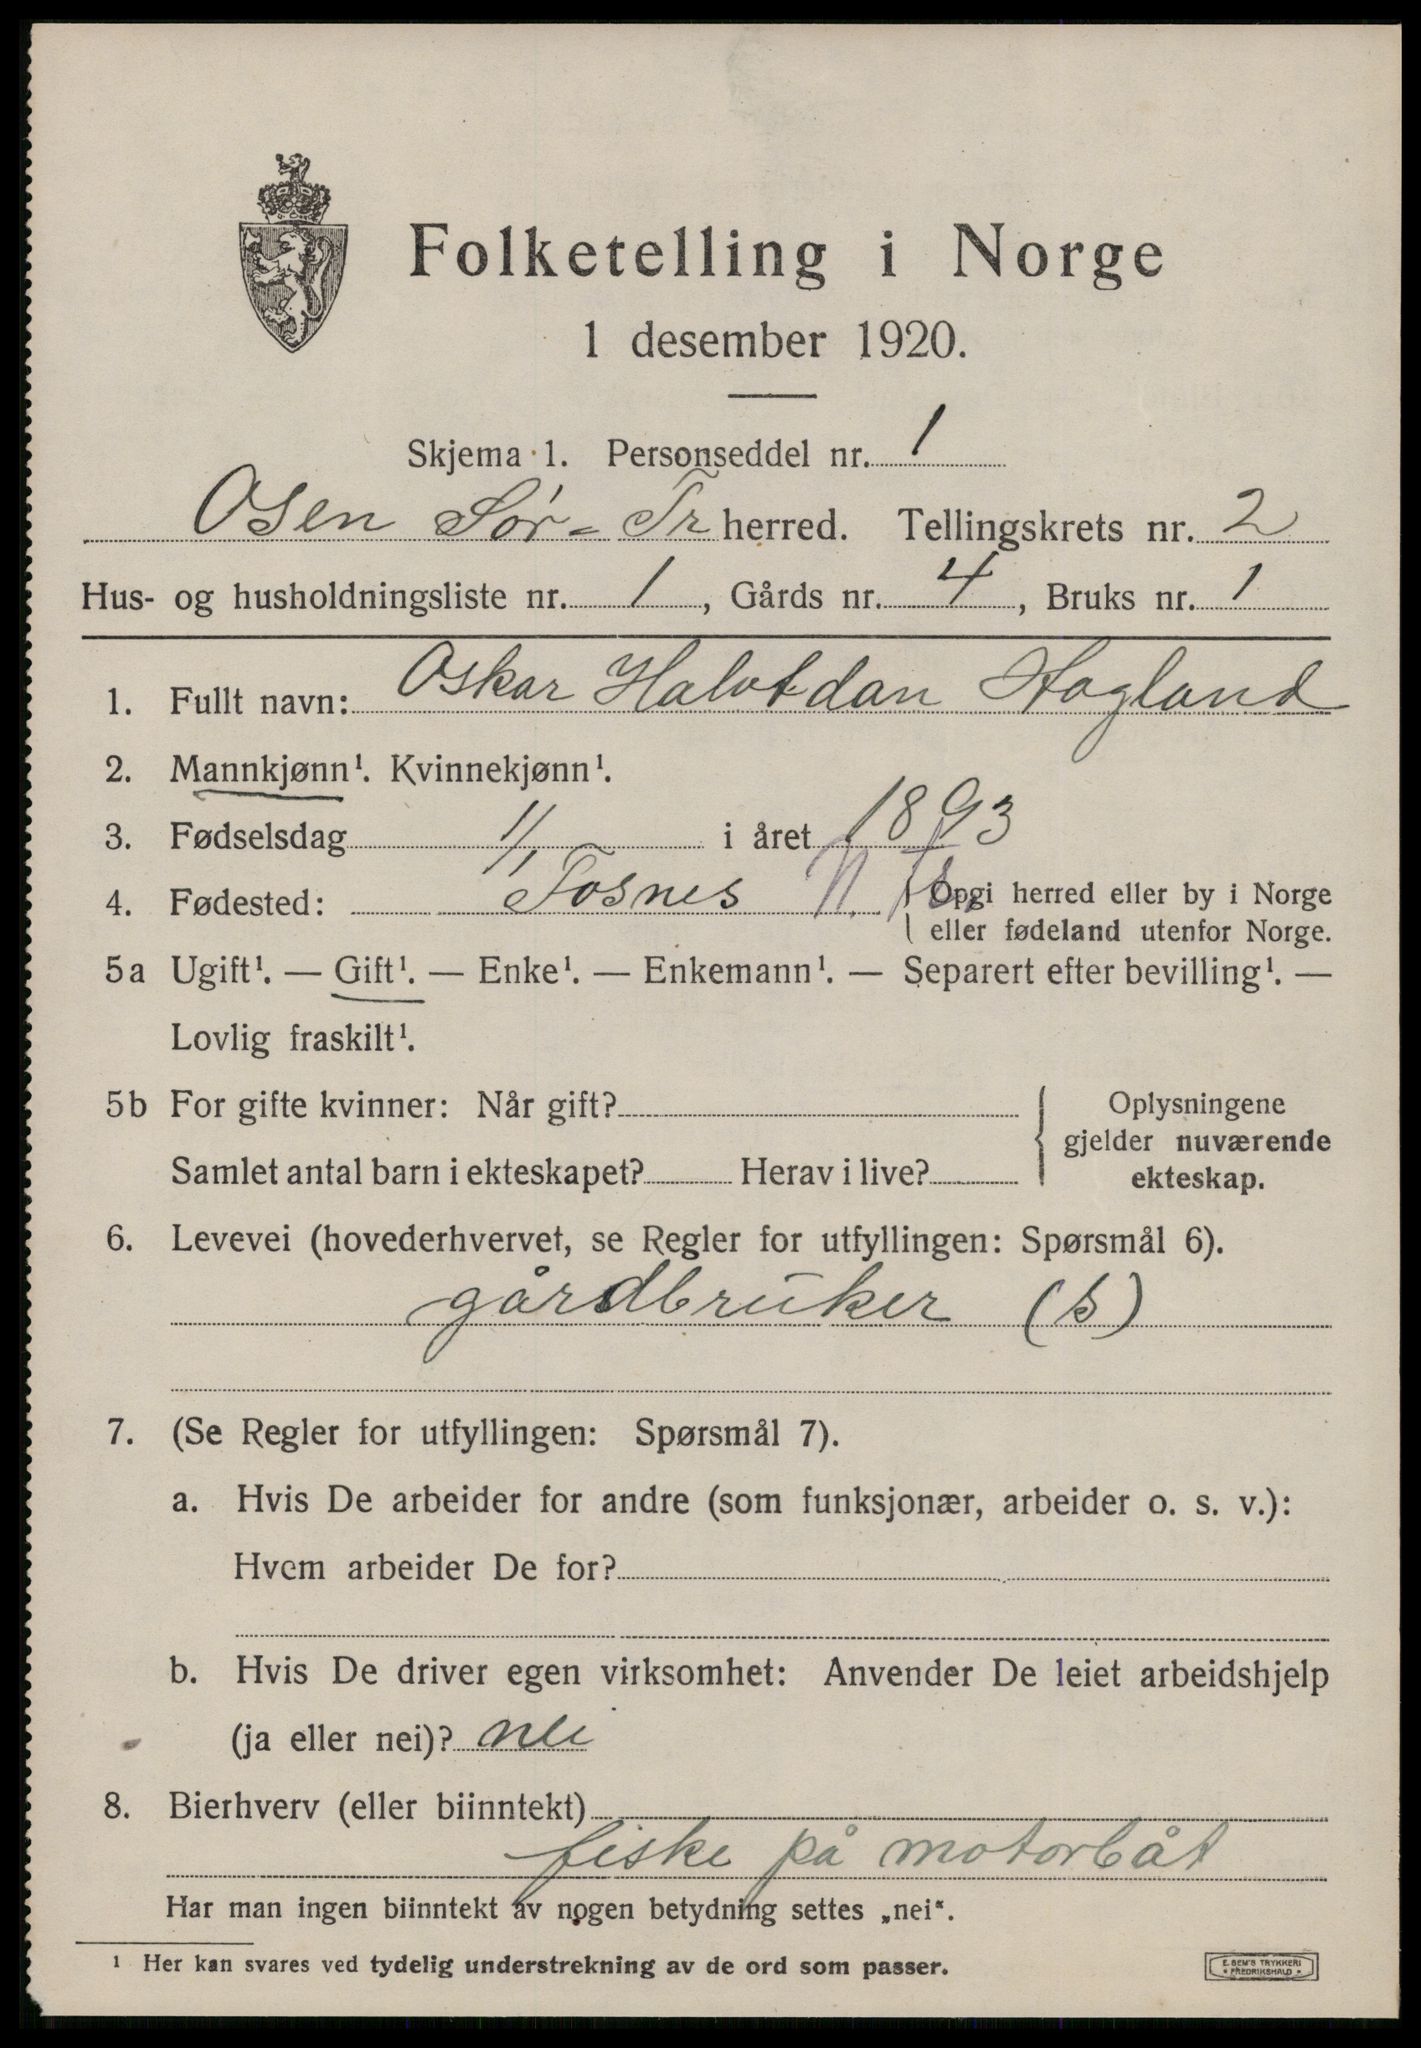 Folketelling i Norge
1 desember 1920.
Skjema 1. Personseddel nr. 1
Osen Sør-Tr herred. Tellingskrets nr. 2
Hus- og husholdningsliste nr. 1, Gårds nr. 4, Bruks nr. 1
1. Fullt navn: Oskar Halvdan Hagland
2. Mannkjønn¹. Kvinnekjønn¹.
3. Fødselsdag 1/1 i året 1893
4. Fødested: Fosnes N. Tr. Opgi herred eller by i Norge
eller fødeland utenfor Norge.
5a Ugift¹. — Gift¹. — Enke¹. — Enkemann¹. — Separert efter bevilling¹. —
Lovlig fraskilt¹.
5b For gifte kvinner: Når gift?
Samlet antal barn i ekteskapet? Herav i live?
Oplysningene
gjelder nuværende
ekteskap.
6. Levevei (hovederhvervet, se Regler for utfyllingen: Spørsmål 6).
gårdbruker (s)
7. (Se Regler for utfyllingen: Spørsmål 7).
a. Hvis De arbeider for andre (som funksjonær, arbeider o. s. v.):
Hvem arbeider De for?
b. Hvis De driver egen virksomhet: Anvender De leiet arbeidshjelp
(ja eller nei)? nei
8. Bierhverv (eller biinntekt)
fiske på motorbåt
Har man ingen biinntekt av nogen betydning settes „nei“.
¹ Her kan svares ved tydelig understrekning av de ord som passer.
E. SEM'S TRYKKERI
• FREDRIKSHALD •